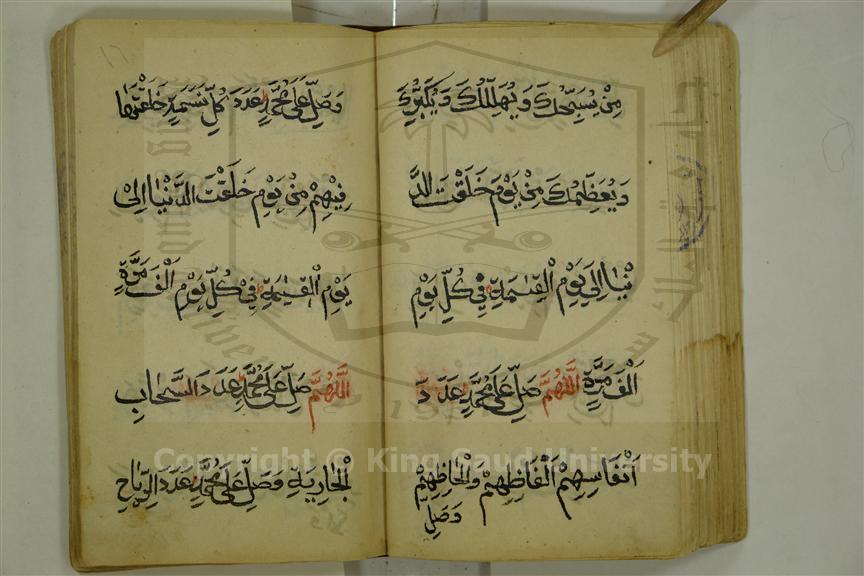 مِنْ يُسَبِّحُكَ وَيُهَلِّلُكَ وَيُكَبِّرُكَ
وَيُعَظِّمُكَ مِنْ يَوْمَ خَلَقْتَ الدَّ
نْيَا اِلَى يَوْمِ الْقِيٰمَةِ فِي كُلِّ يَوْمٍ
اَلْفَ مَرَّةٍ اَللّٰهُمَّ صَلِّ عَلَى مُحَمَّدٍ عَدَدَ
اَنْفَاسِهِمْ اَلْفَاظِهِمْ وَالْحَاظِهِمْ
وَصَلِ
١٦
وَصَلِّ عَلَى مُحَمَّدٍ عَدَدَ كُلِّ نَسَمَةٍ خَلَقْتَهَا
فِيْهِمْ مِنْ يَوْمِ خَلَقْتَ الدُّنْيَا اِلىْ
يَوْمِ الْقِيٰمَةِ فِيْ كُلِّ يَوْمٍ اَلْفَ مَرَّةٍ
اَللّٰهُمَّ صَلِّ عَلَى مُحَمَّدٍ عَدَدَ السَّحَابِ
الْجَارِيَةِ وَصَلِّ عَلَى مُحَمَّدٍ عَدَدَ الرِّيَاحِ
Copyright © King Saud University